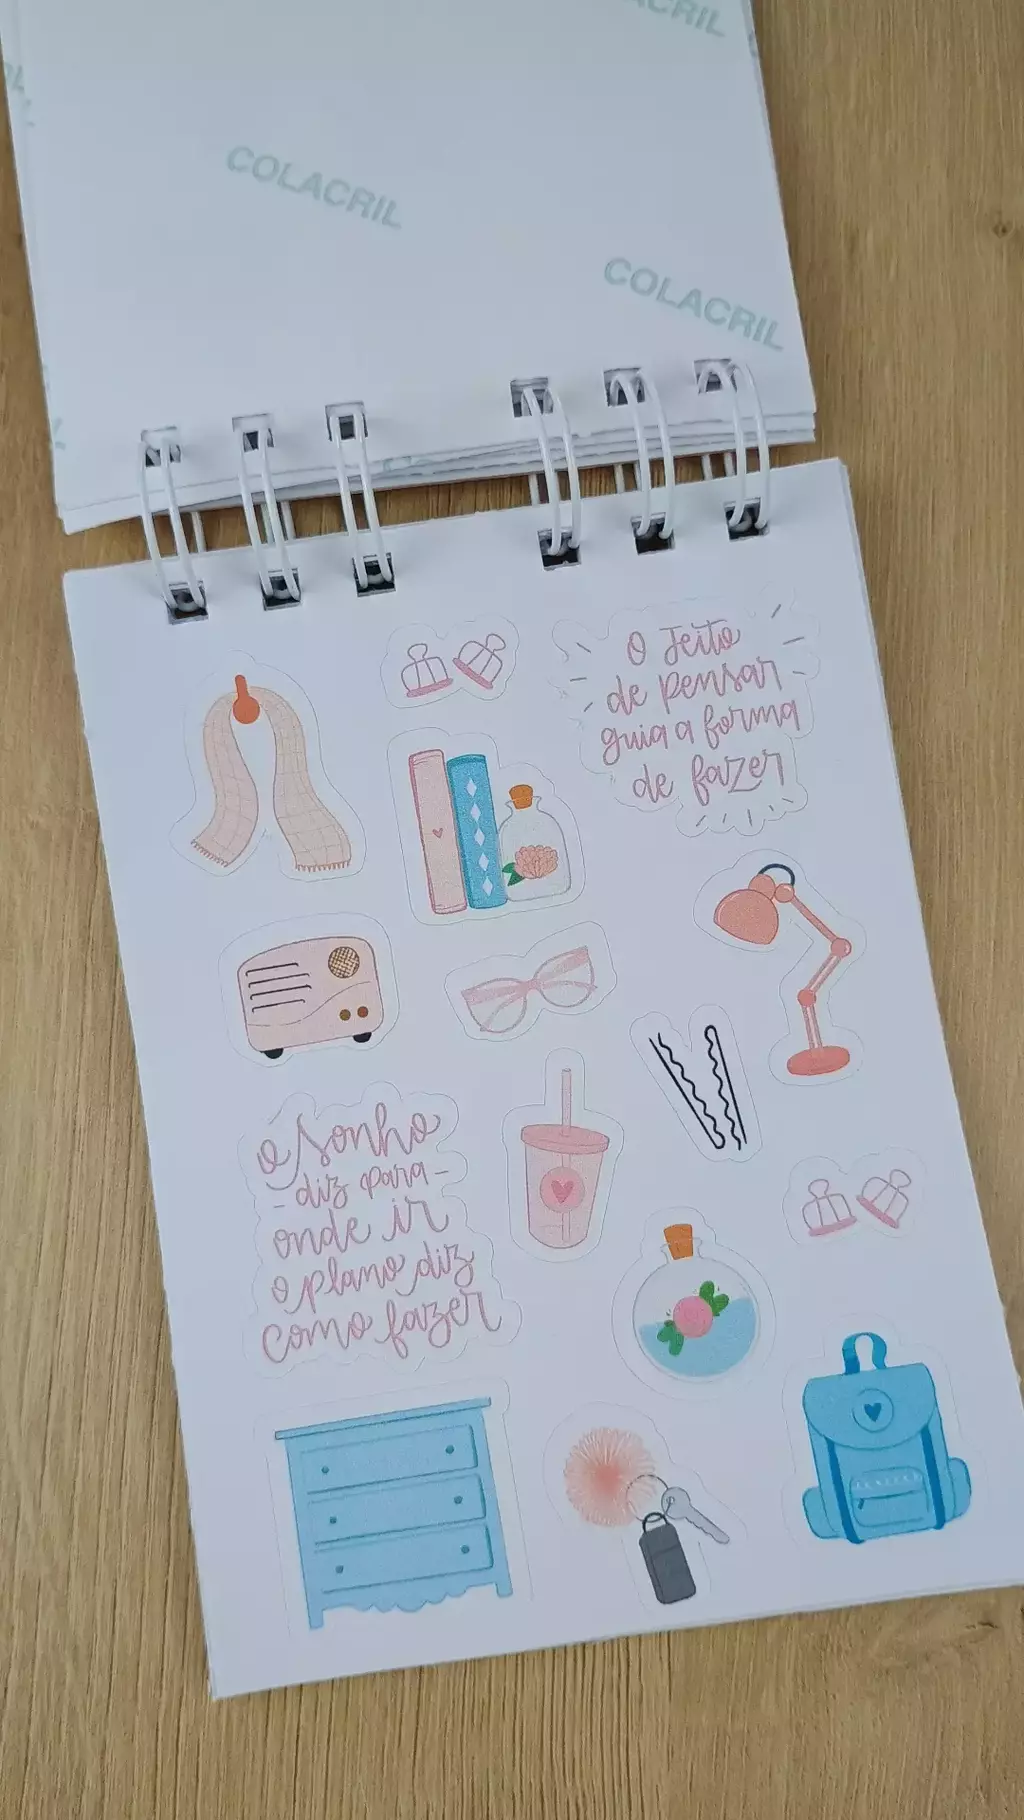 COLACRIL
COLACRIL
COLACRIL
o Jeito
de pensar
guia a forma
de fazer
o sonho
diz para
onde ir
o plano diz
como fazer